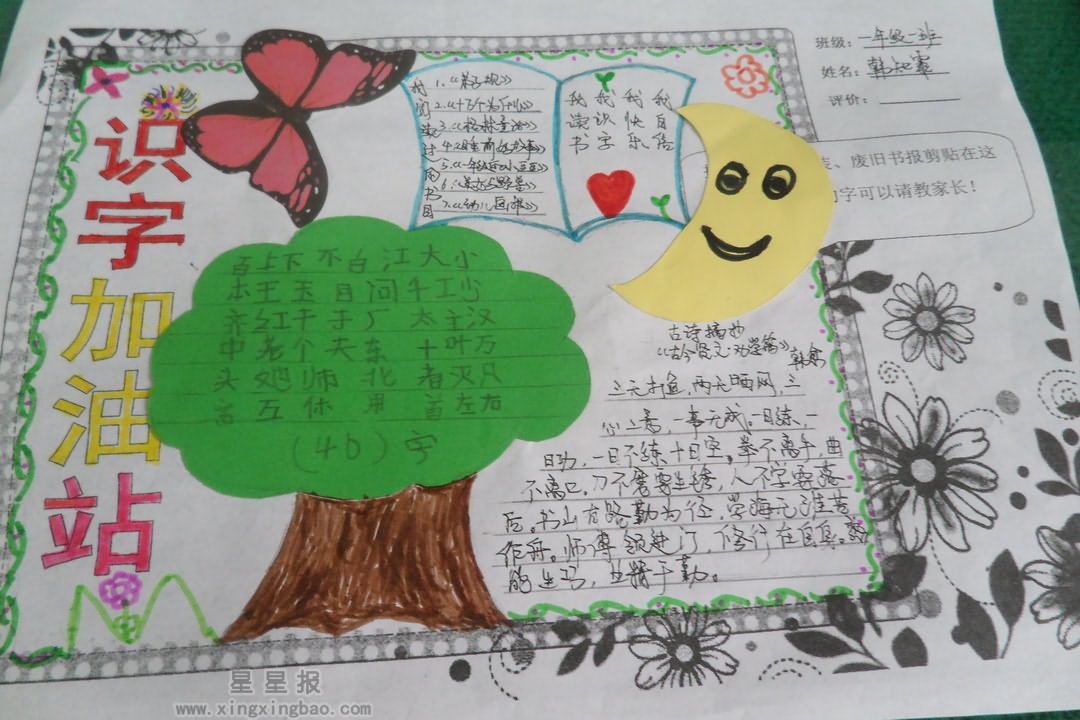 班级：一年级一班
姓名：韩
评价：
、废旧书报剪贴在这
字可以请教家长！
识字加油站
我阅读过的书目
1.《弟子规》
2.《十万个为什么》
3.《格林童话》
4.《睡前好故事》
7.《幼儿画报》
我读书
我识字
我快乐
我自信
百上下 不白江大小
本王玉目问牛工少
红干手厂 太主汉
中老个夫东 十叶万
头她师北 者灭只
互休用 首左右
(46)字
古诗摘抄
《古今贤文·劝学篇》
三天打鱼，两天晒网，三
心二意，一事无成。一日练，一
日功，一日不练十日空。拳不离手，曲
不离口。刀不磨要生锈，人不学要落
后。书山有路勤为径，学海无涯苦
作舟。师傅领进门，修行在自身。熟
能生巧，业精于勤。
星星报
www.xingxingbao.com